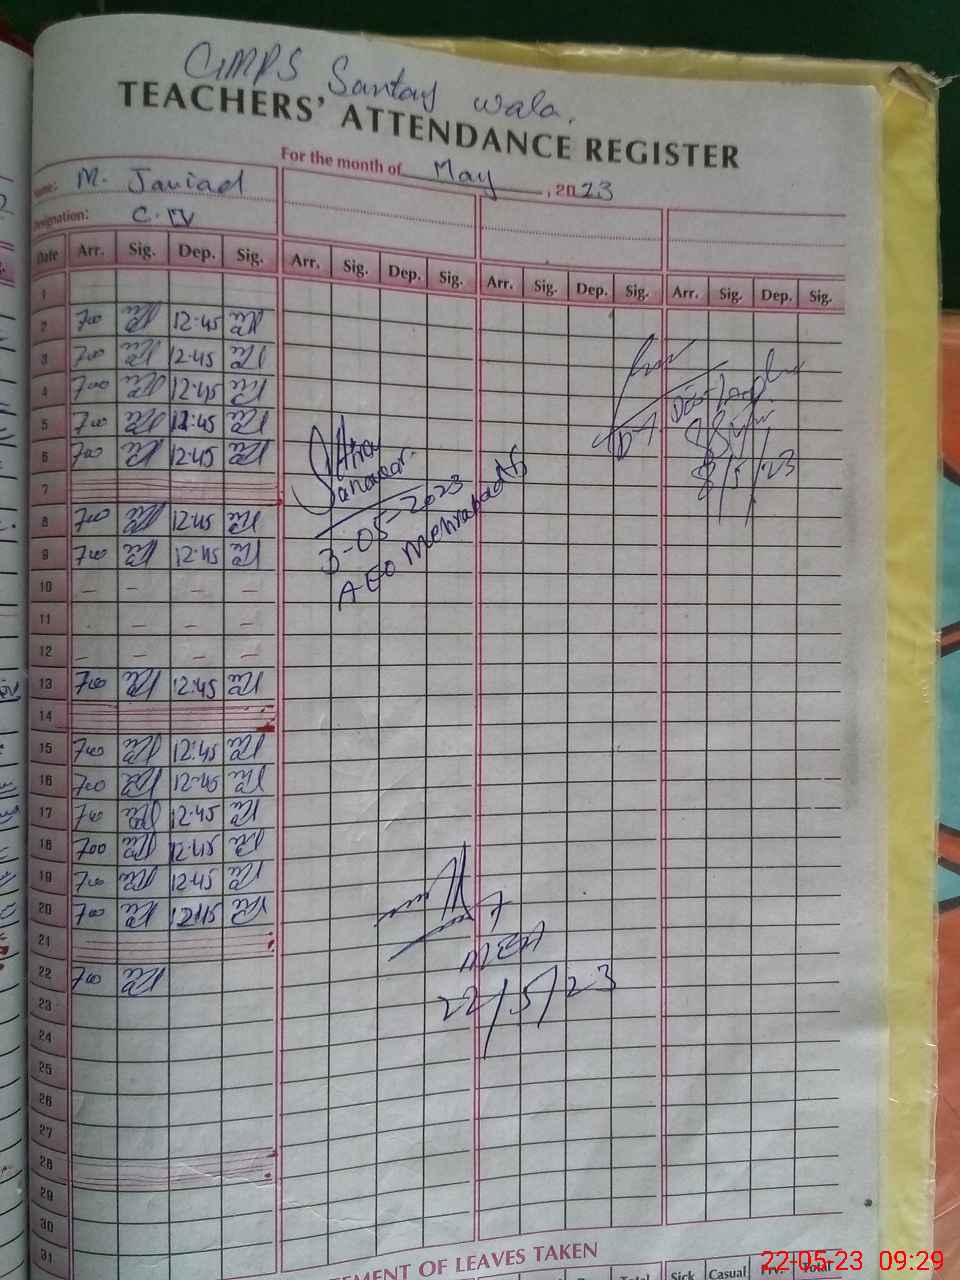 GMPS Santay wala.
TEACHERS' ATTENDANCE REGISTER
For the month of May, 2023
Name: M. Javiad
Designation: C. IV
Date Arr. Sig. Dep. Sig. Arr. Sig. Dep. Sig. Arr. Sig. Dep. Sig. Arr. Sig. Dep. Sig.
1
2 700 12.45
3 700 12.45
4 700 12.45
5 700 12:45
6 700 12.45
7
8 700 12.45
9 700 12.45
10 – – – –
11 – – –
12 – – –
13 700 12.45
14
15 700 12:45
16 700 12.45
17 700 12.45
18 700 12.45
19 700 12.45
20 700 12.45
21
22 700
23
24
25
26
27
28
29
30
31
3-05-2023
AEO Mehrabad
8/5/23
MEA
22/5/23
EMENT OF LEAVES TAKEN
Total Sick Casual Prv. Total
22-05-23 09:29